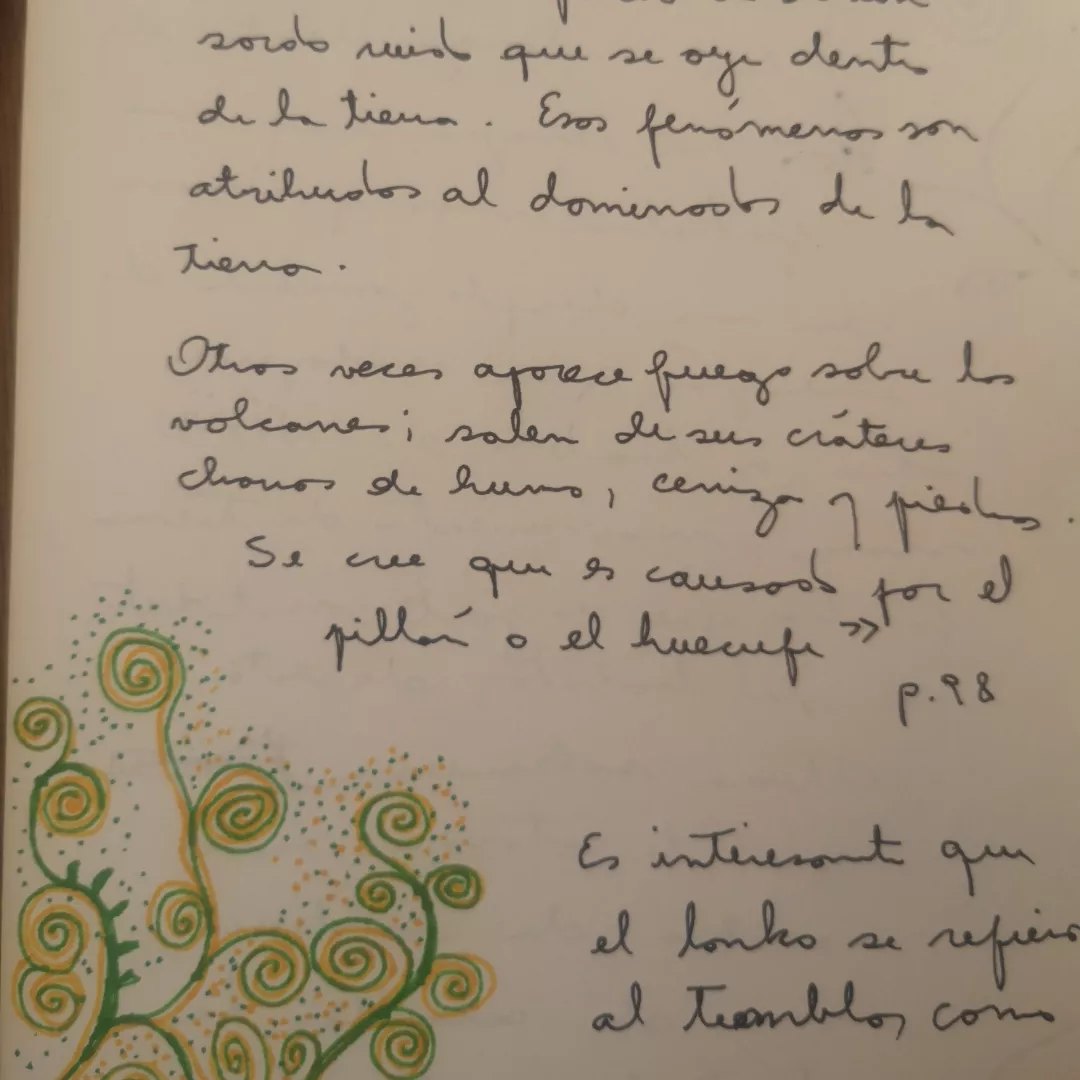 sordo ruido que se oye dentro
de la tierra. Esos fenómenos son
atribuidos al dominador de la
tierra.
Otras veces aparece fuego sobre los
volcanes; salen de sus cráteres
chonos de humo, ceniza y piedras.
Se cree que es causado por el
pillán o el huecufe >>
p. 98
Es interesante que
el lonko se refiera
al temblor, como